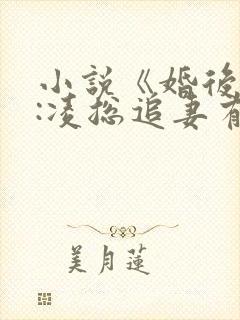 小說《婚後
:凌總追妻有
美月蓮